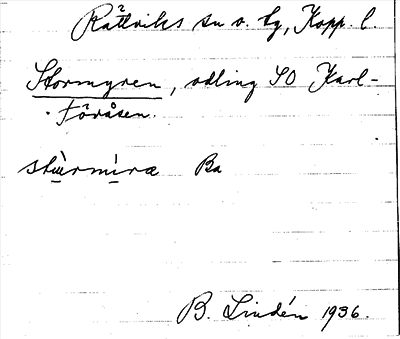 Rättviks sn o. tg, Kopp. l.
Stormyren, odling SO Karl-
föråsen.
stùrmìra Ba
B. Lindén 1936.